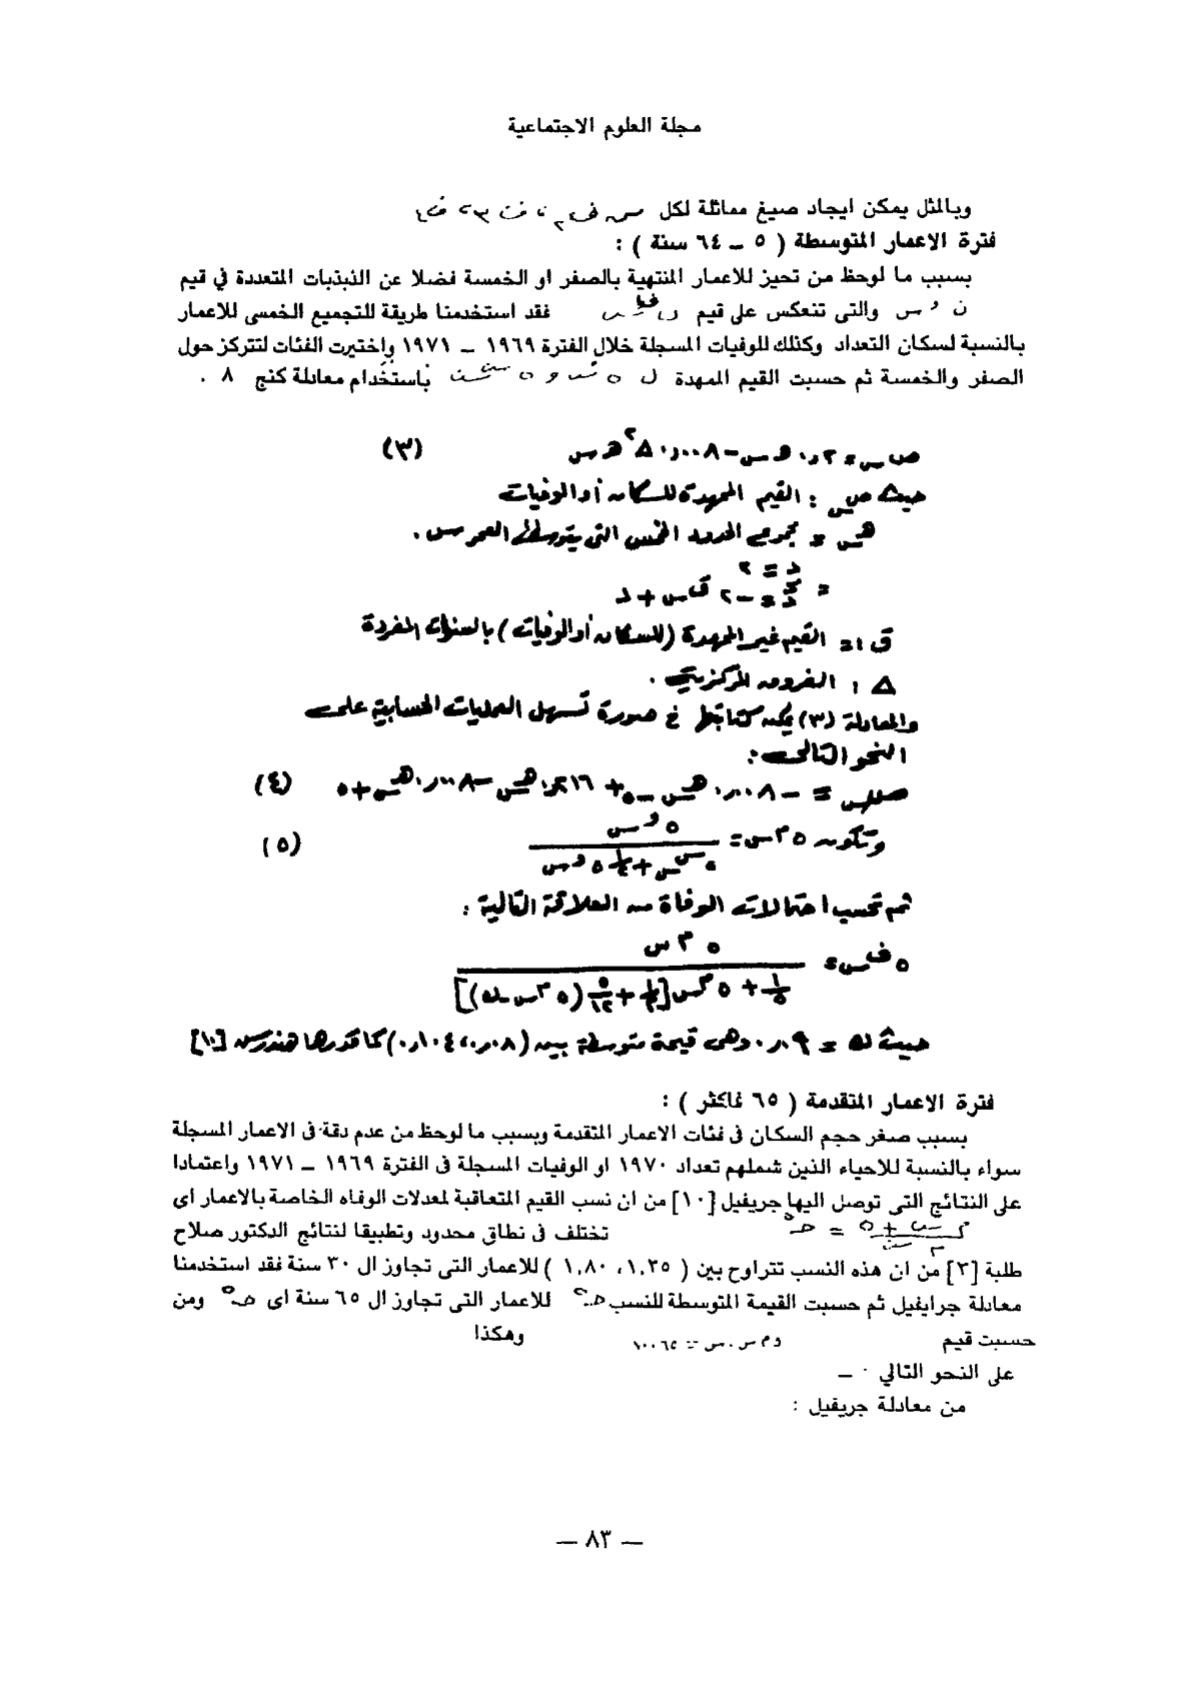 مجلة العلوم الاجتماعية
وبالمثل يمكن ايجاد صيغ مماثلة لكل
فترة الاعمار المتوسطة ( ٥ ــ ٦٤ سنة ) :
بسبب ما لوحظ من تحيز للاعمار المنتهية بالصفر او الخمسة فضلا عن الذبذبات المتعددة في قيم
والتى تنعكس على قيم فقد استخدمنا طريقة للتجميع الخمسى للاعمار
بالنسبة لسكان التعداد وكذلك للوفيات المسجلة خلال الفترة ١٩٦٩ ــ ١٩٧١ واختيرت الفئات لتتركز حول
الصفر والخمسة ثم حسبت القيم الممهدة باستخدام معادلة كنج ٨ .
ص س = ٢ر٠ هـ س − ٠٠٨ر٠ Δ٢ هـ س (٣)
حيث ص س : القيم الممهدة للسكان أو الوفيات
هـ س = مجموع الحدود الخمس التى يتوسطها العمر س .
ق : القيم غير الممهدة (للسكان أو الوفيات) بالسنوات المفردة
Δ : الفروق المركزية .
والمعادلة (٣) يمكن كتابتها فى صورة تسهل العمليات الحسابية على
النحو التالى :
ص س = − ٠٠٨ر٠ هـ س − ٥ + ٢١٦ر٠ هـ س − ٠٠٨ر٠ هـ س + ٥ (٤)
وتكون ٥ م س = (٥)
ثم تحسب احتمالات الوفاة من العلاقة التالية :
حيث ك = ٠٩ر٠ وهى قيمة متوسطة بين (٠٨ر٠، ١٠٤ر٠) كما قدرها [١٠]
فترة الاعمار المتقدمة ( ٦٥ فاكثر ) :
بسبب صغر حجم السكان فى فئات الاعمار المتقدمة وبسبب ما لوحظ من عدم دقة فى الاعمار المسجلة
سواء بالنسبة للاحياء الذين شملهم تعداد ١٩٧٠ او الوفيات المسجلة فى الفترة ١٩٦٩ ــ ١٩٧١ واعتمادا
على النتائج التى توصل اليها جريفيل [١٠] من ان نسب القيم المتعاقبة لمعدلات الوفاه الخاصة بالاعمار اى
تختلف فى نطاق محدود وتطبيقا لنتائج الدكتور صلاح
طلبة [٣] من ان هذه النسب تتراوح بين ( ١,٣٥ ، ١,٨٠ ) للاعمار التى تجاوز ال ٣٠ سنة فقد استخدمنا
معادلة جرايفيل ثم حسبت القيمة المتوسطة للنسب للاعمار التى تجاوز ال ٦٥ سنة اى ومن
حسبت قيم وهكذا
على النحو التالي ــ
من معادلة جريفيل :
— ٨٣ —